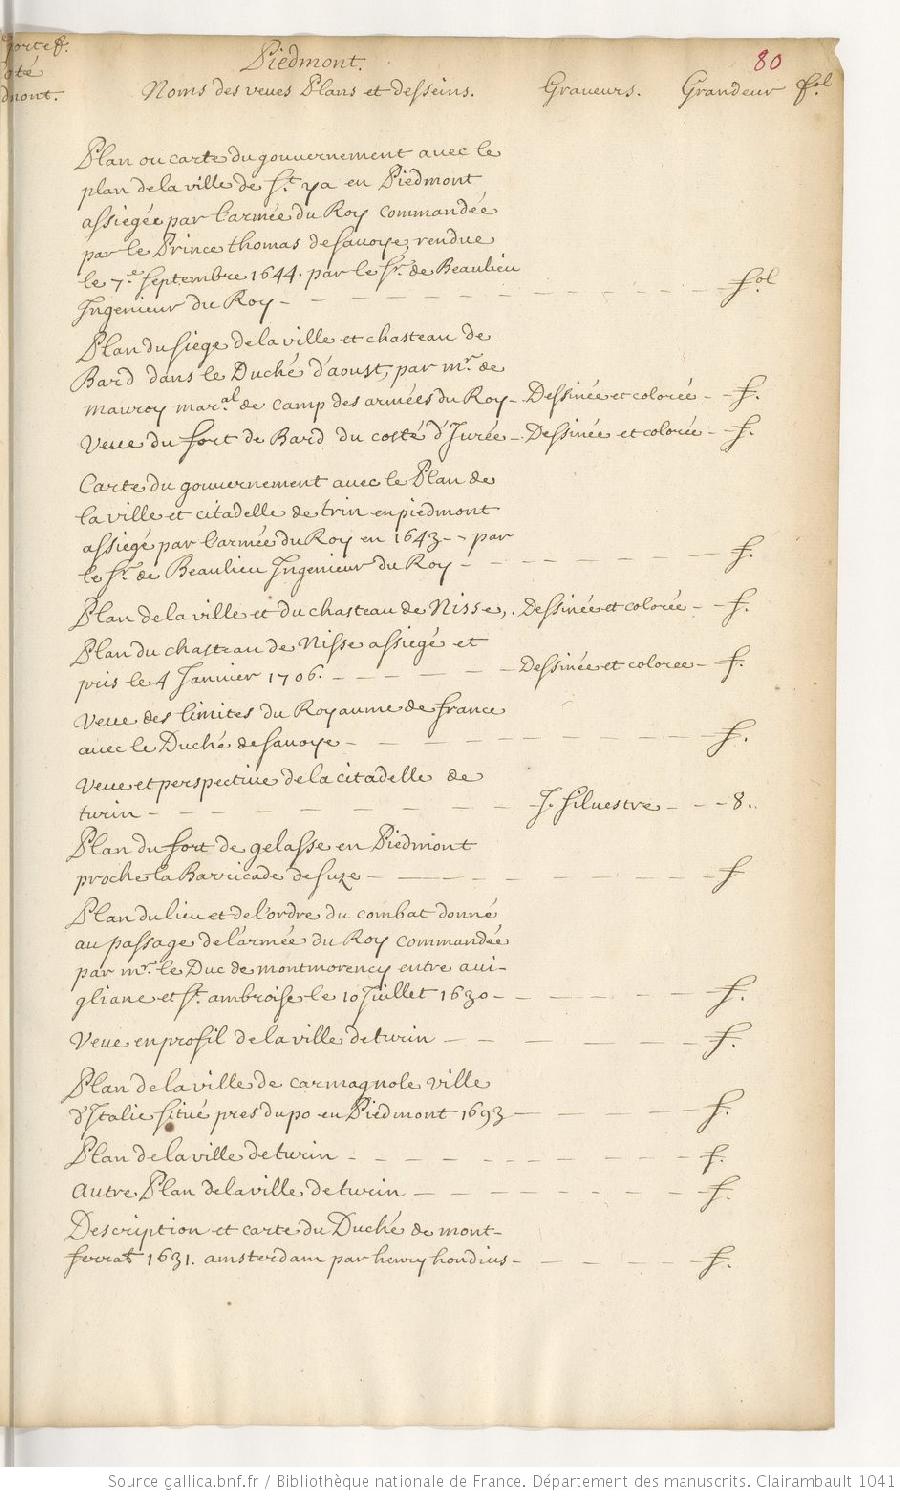 Piedmont.
80
Noms des veues Plans et desseins. Graveurs. Grandeur fol
Plan ou carte du gouuernement auec le
plan de la ville de St. ya en Piedmont
assiegée par l'armée du Roy commandée
par le Prince thomas de sauoye, rendue
le 7.e septembre 1644. par le Sr. de Beaulieu
Ingenieur du Roy - fol
Plan du siege de la ville et chasteau de
Bard dans le Duché d'aoust, par mr. de
mauroy mar.al de camp des armées du Roy - Dessinée et colorée - f.
Veue du fort de Bard du costé d'Iurée - Dessinée et colorée - f.
Carte du gouuernement auec le Plan de
la ville et citadelle de trin en piedmont
assiegé par l'armée du Roy en 1643 - - par
le Sr. de Beaulieu Ingenieur du Roy - f.
Plan de la ville et du chasteau de Nisse, . Dessinée et colorée - f.
Plan du chasteau de Nisse assiegé et
pris le 4 Januier 1706. - Dessinée et colorée - f.
Veue des limites du Royaume de france
auec le Duché de sauoye - f.
Veue et perspectiue de la citadelle de
turin - J. siluestre - 8..
Plan du fort de gelasse en Piedmont
proche la Barricade de suze - f
Plan du lieu et de l'ordre du combat donné
au passage de l'armée du Roy commandée
par mr. le Duc de montmorency entre aui-
gliane et St. ambroise le 10 Juillet 1630 - f.
Veue en profil de la ville de turin - f.
Plan de la ville de carmagnole ville
d'Italie situé pres du po en Piedmont 1693 - f.
Plan de la ville de turin - f.
Autre Plan de la ville de turin - f.
Description et carte du Duché de mont-
ferrat 1631. amsterdam par henry hondius - f.
Source gallica.bnf.fr / Bibliothèque nationale de France. Département des manuscrits. Clairambault 1041